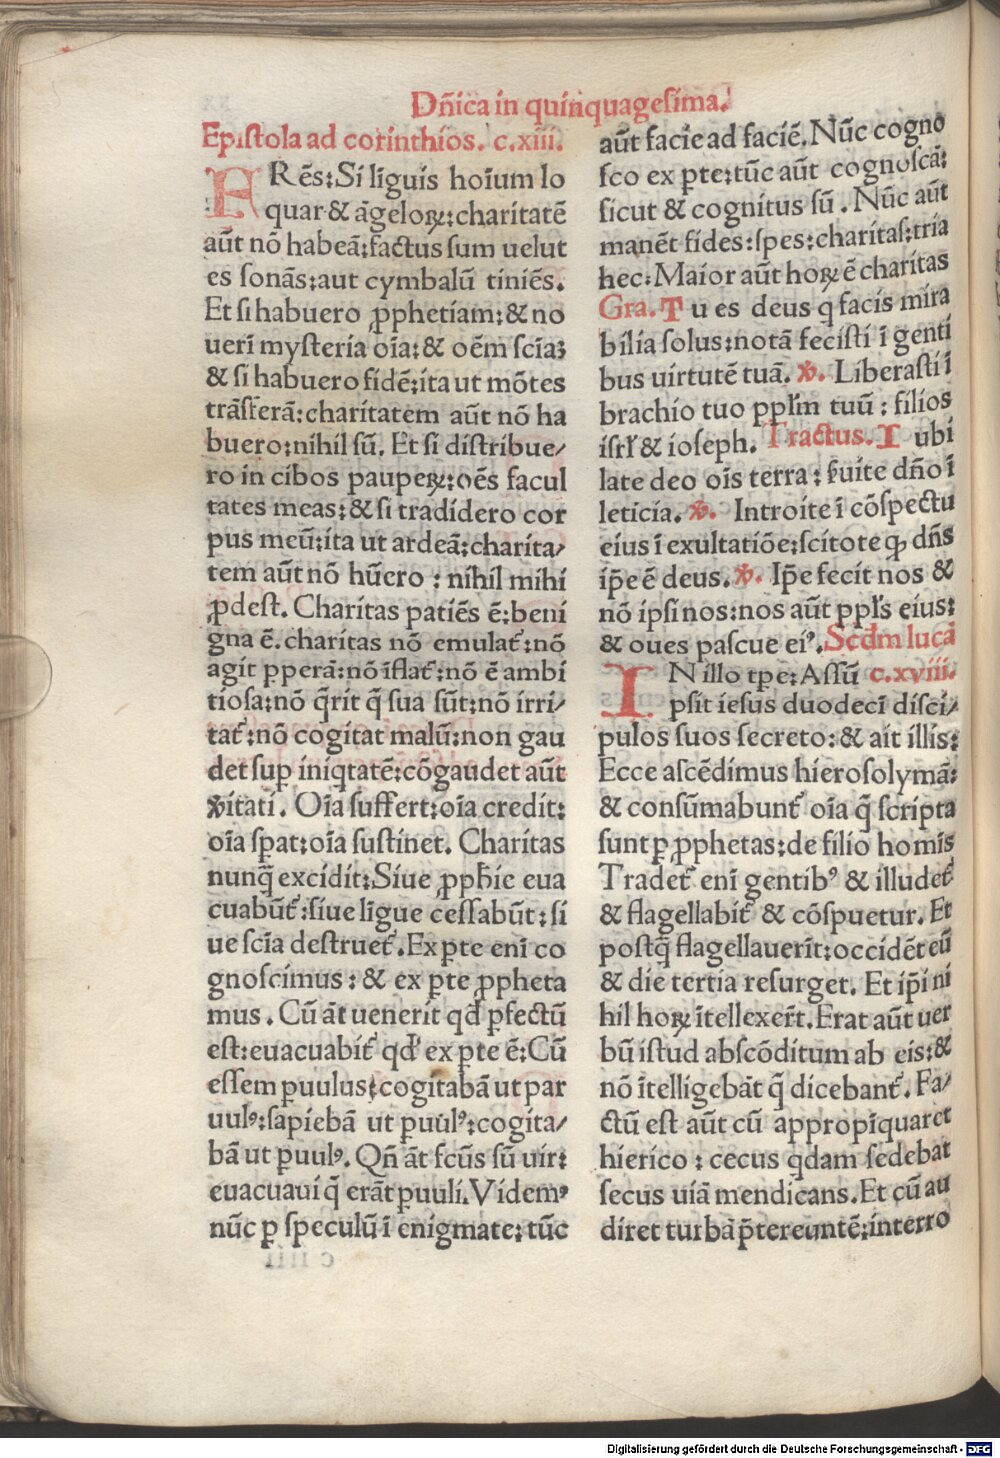 Dn̄ica in quinquagesima.
Epistola ad corinthios. c.xiii.
FRēs:Si līguis hoīum lo
quar & āgeloꝝ:charitatē
aūt nō habeā:factus sum uelut
es sonās:aut cymbalū tiniēs.
Et si habuero ꝓphetiam:& no
uerī mysteria oīa:& oēm scīaꝫ
& si habuero fidē:ita ut mōtes
trāsferā:charitatem aūt nō ha
buero:nihil sū. Et si distribue/
ro in cibos paupeꝝ:oēs facul
tates meas:& si tradidero cor
pus meū:ita ut ardeā:charita/
tem aūt nō hūero : nihil mihi
ꝓdest. Charitas patiēs ē:beni
gna ē. charitas nō emulat᷑:nō
agit ꝑperā:nō īflat᷑:nō ē ambi
tiosa:nō q̄rit q̄ sua sūt:nō irri/
tat᷑:nō cogitat malū:non gau
det suꝑ iniqtatē:cōgaudet aūt
v̄itati. Oīa suffert:oīa credit:
oīa sꝑat:oīa sustinet. Charitas
nunq̄ excidit:Siue ꝓph̄ie eua
cuabūt᷑:siue līgue cessabūt:si
ue scīa destruet᷑.Ex ꝑte enī co
gnoscimus : & ex ꝑte ꝓpheta
mus . Cū āt uenerit qd̄ ꝑfectū
est:euacuabit᷑ qd̄ ex ꝑte ē:Cū
essem ꝑuulus:cogitabā ut par
uulꝰ:sapiebā ut ꝑuulꝰ:cogita/
bā ut ꝑuulꝰ. Qn̄ āt fcūs sū uir:
euacuaui q̄ erāt ꝑuuli.Videmꝰ
nūc ꝑ speculū ī enigmate:tūc
aūt facie ad faciē.Nūc cogno
sco ex ꝑte:tūc aūt cognoscā:
sicut & cognitus sū . Nūc aūt
manēt fides:spes:charitas:tria
hec:Maior aūt hoꝝ ē charitas
Gra. Tu es deus q facis mira
bilia solus:notā fecisti ī genti
bus uirtutē tuā. ℣. Liberasti ī
brachio tuo ppl̄m tuū : filios
isrl̄ & ioseph. Tractus. Iubi
late deo oīs terra : ẜuite dn̄o ī
leticia. ℣. Introite ī cōspectu
eius ī exultatiōe:scitote ꝙ dn̄s
ip̄e ē deus. ℣. Ip̄e fecit nos &
nō ipsi nos:nos aūt ppl̄s eius:
& oues pascue eiꝰ. Scd̄m lucā
c.xviii.
IN illo tꝑe:Assū
psit iesus duodecī disci/
pulos suos secreto: & ait illis:
Ecce ascēdimus hierosolymā:
& consūmabunt᷑ oīa q̄ scripta
sunt ꝑ ꝓphetas:de filio homīs
Tradet᷑ enī gentibꝰ & illudet᷑
& flagellabit᷑ & cōspuetur. Et
postq̄ flagellauerīt:occidēt eū
& die tertia resurget. Et ip̄i ni
hil hoꝝ ītellexer̄t.Erat aūt uer
bū istud abscōditum ab eis:&
nō ītelligebāt q̄ dicebant᷑. Fa/
ctū est aūt cū appropīquaret
hierico : cecus qdam sedebat
secus uiā mendicans. Et cū au
diret turbā p̄tereuntē:interro